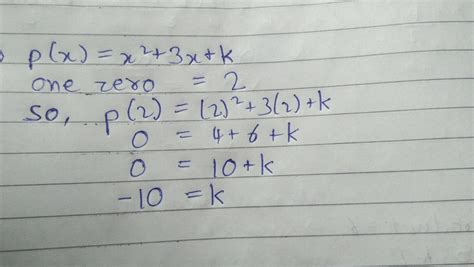 p(x) = x²+3x+k
one zero = 2
so, p(2) = (2)²+3(2)+k
0 = 4+6+k
0 = 10+k
-10 = k